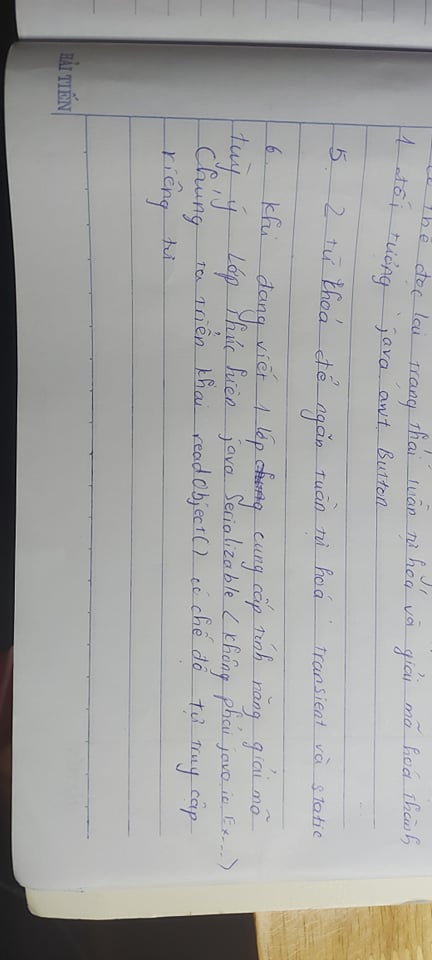 thể đọc lại trạng thái tuần tự hoá và giải mã hoá thành
1 đối tượng java awt Button
5. 2 từ khoá để ngăn tuần tự hoá transient và static
6. Khi đang viết 1 lớp chung cung cấp tính năng giải mã
tuỳ ý Lớp thực hiện java Serializable (không phải java.io.Ex...)
Chúng ta triển khai readObject() có chế độ tự truy cập
riêng tư
HẢI TIẾN